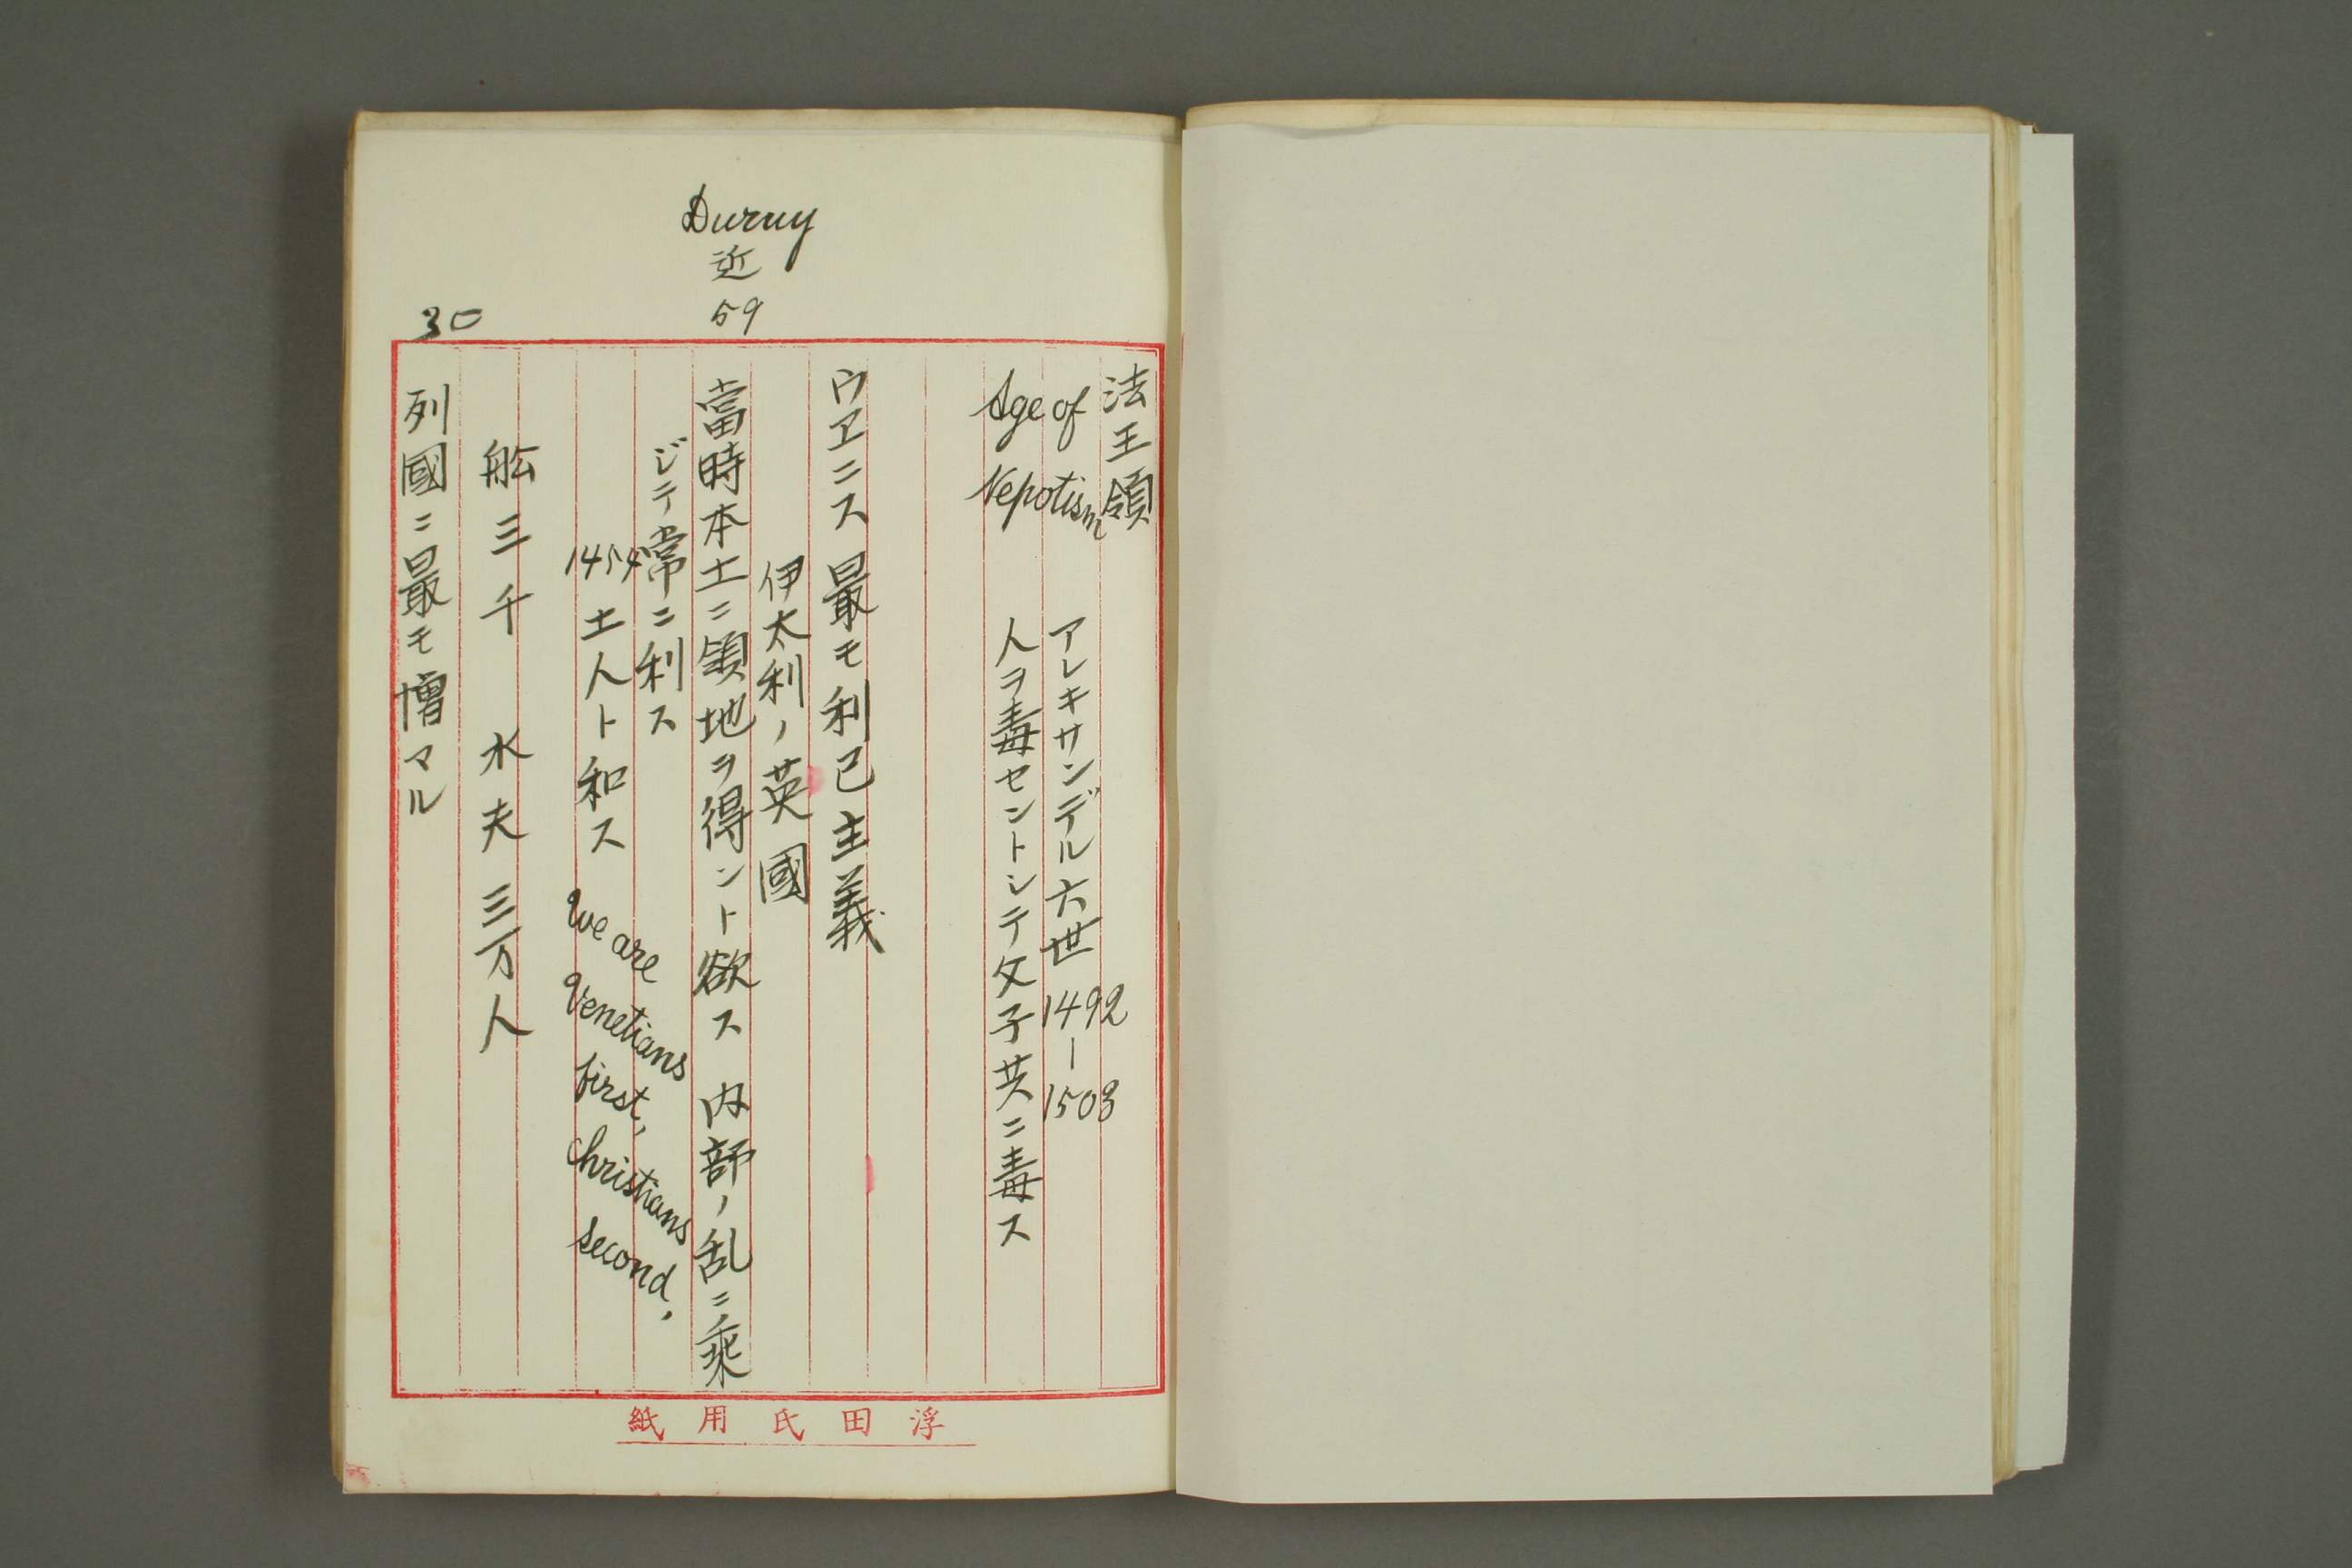 Duruy
近
59
30
法王領
Age of
Nepotism
アレキサンデル六世 1492–1503
人ヲ毒セントシテ父子共ニ毒ス
ウヱニス 最モ利己主義
伊太利ノ英國
當時本土ニ領地ヲ得ント欲ス 内部ノ乱ニ乘
ジテ常ニ利ス
1454 土人ト和ス
We are
Venetians
first,
Christians
second,
舩三千 水夫三万人
列國ニ最モ憎マル
浮田氏用紙